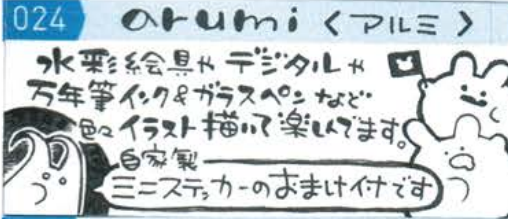 024 arumi 〈アルミ〉
水彩絵具や デジタルや
万年筆インク&ガラスペン などで
色々イラスト描いて楽しんでます。
自家製
ミニステッカーのおまけ付です